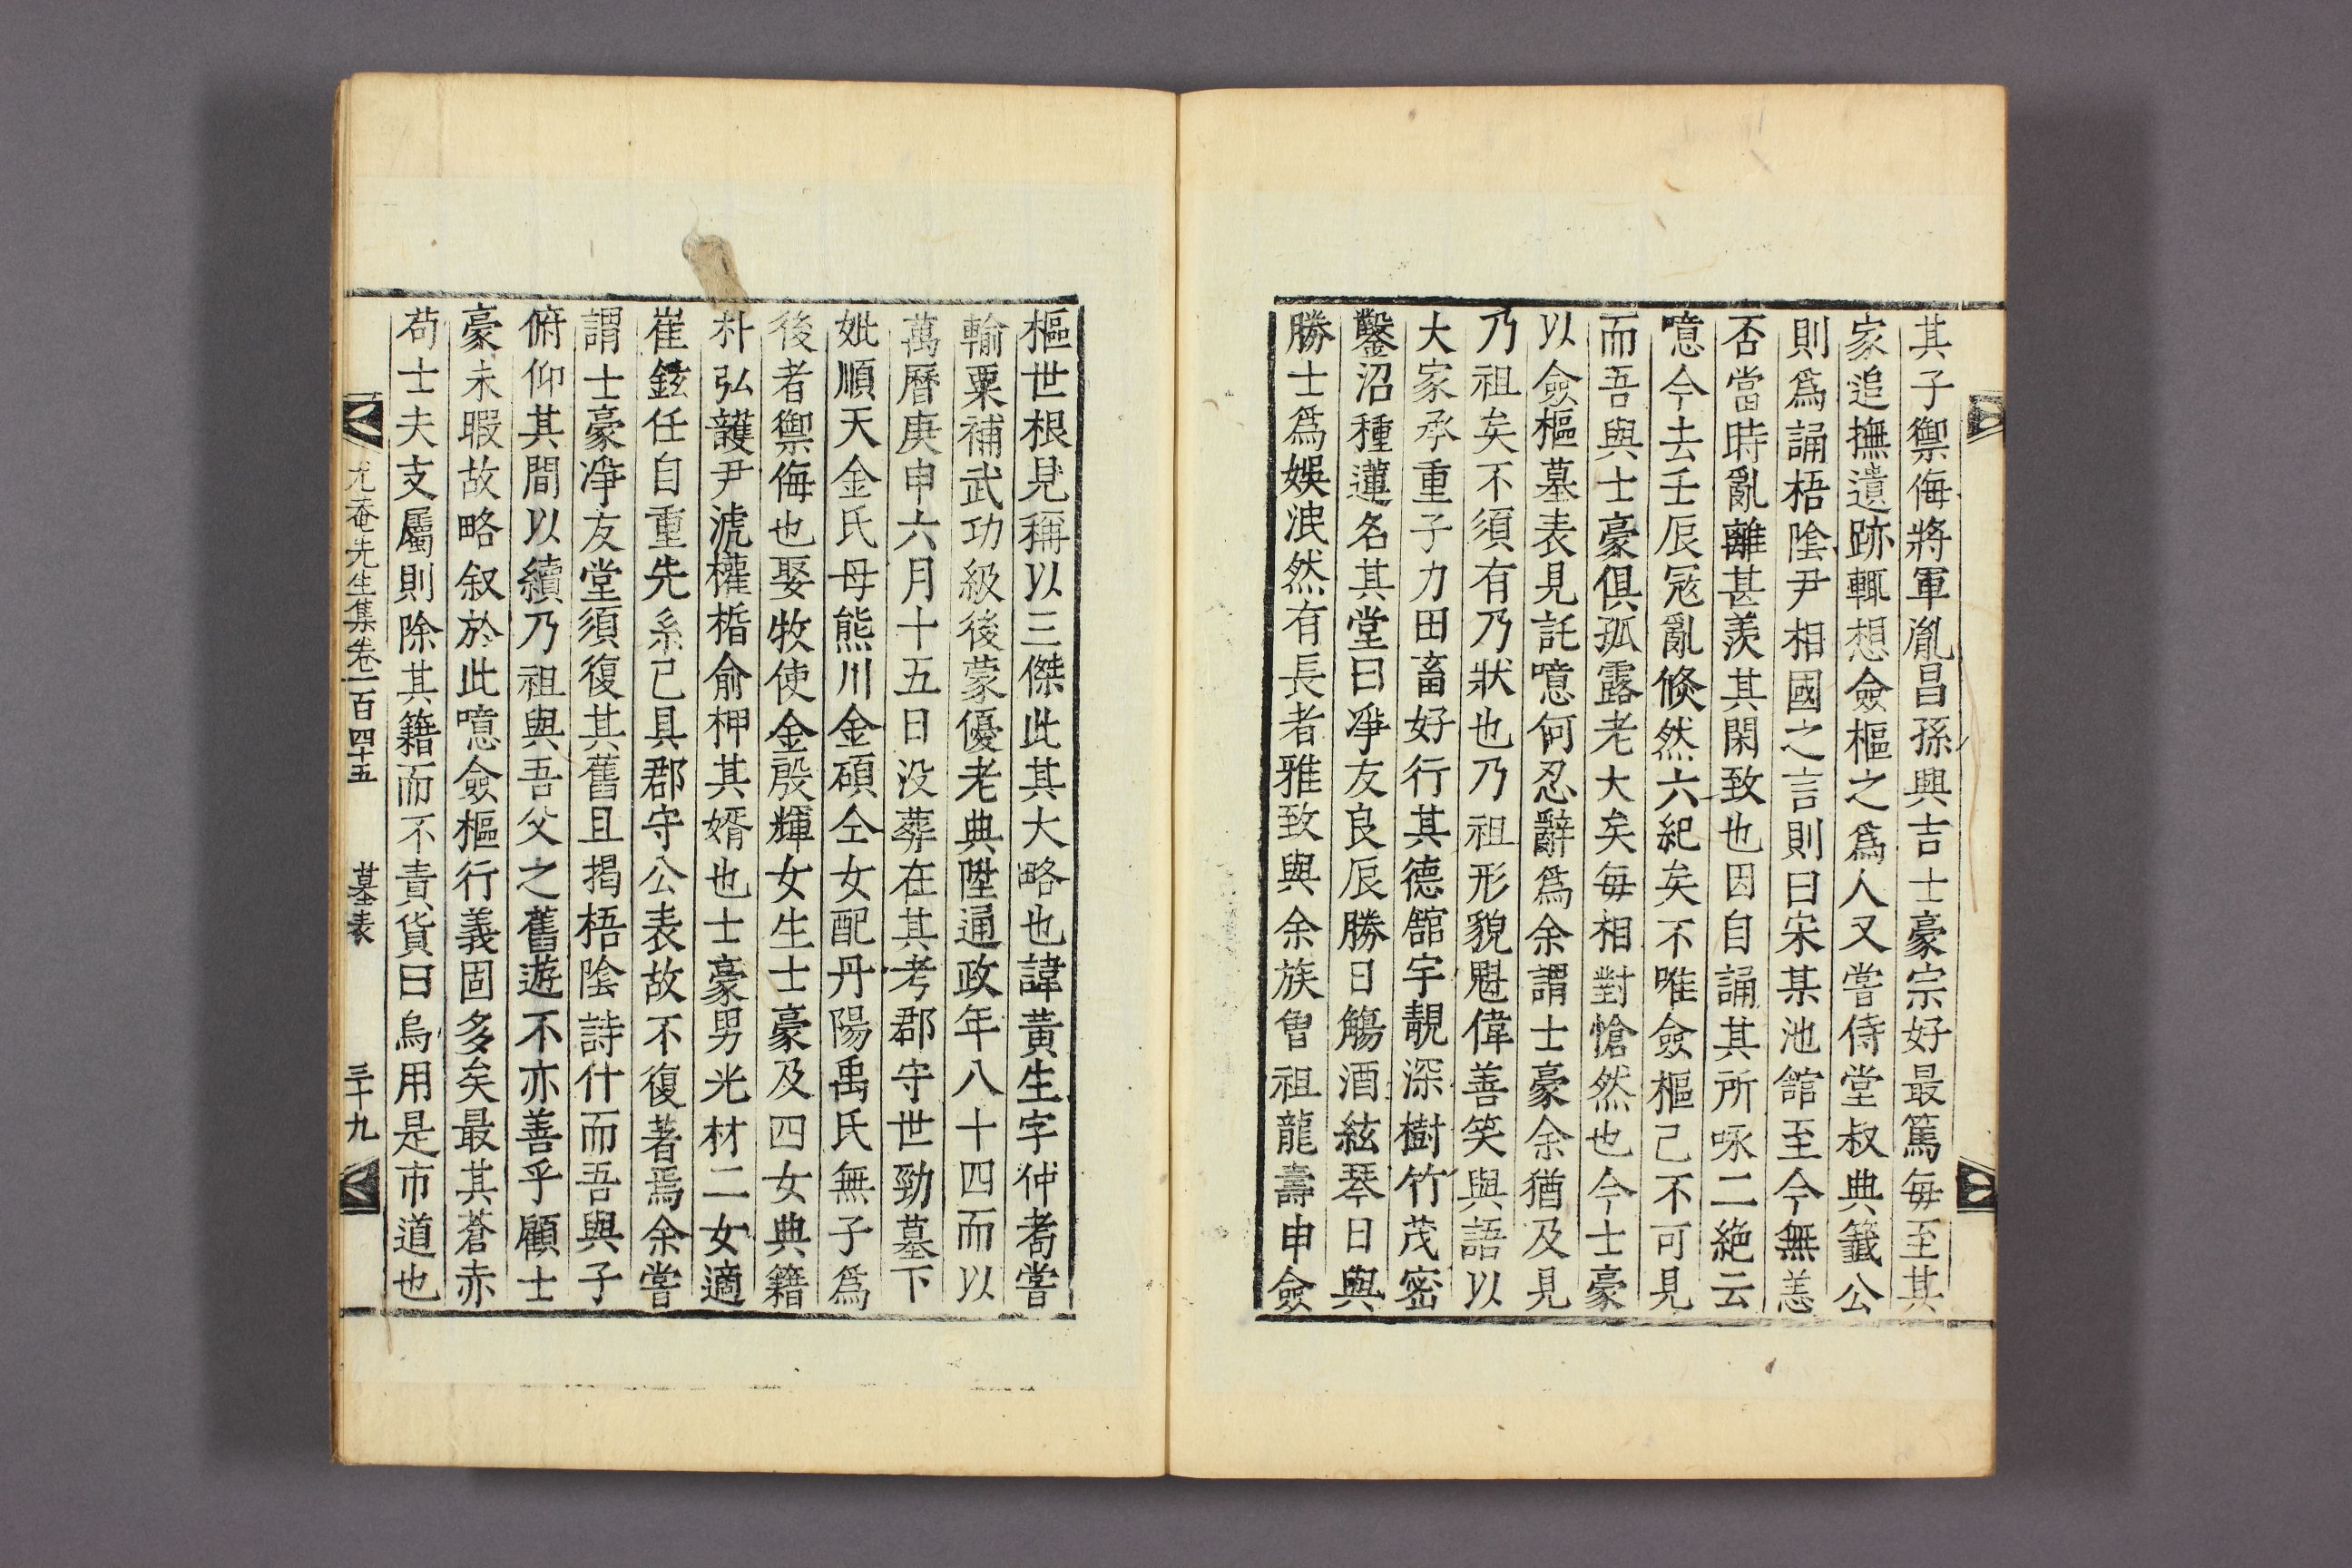 其子禦侮將軍胤昌孫興吉士豪宗好最篤每至其
家追撫遺跡輒想僉樞之爲人又嘗侍堂叔典籤公
則爲誦梧陰尹相國之言則曰宋某池館至今無恙
否當時亂離甚羨其閑致也因自誦其所咏二絶云
噫今去壬辰冦亂倐然六紀矣不唯僉樞己不可見
而吾與士豪俱孤露老大矣每相對愴然也今士豪
以僉樞墓表見託噫何忍辭爲余謂士豪余猶及見
乃祖矣不須有乃狀也乃祖形貌魁偉善笑與語以
大家承重子力田畜好行其德舘宇靚深樹竹茂密
鑿沼種蓮名其堂曰凈友良辰勝日觴酒絃琴日與
勝士爲娛泯然有長者雅致與余族曾祖龍壽申僉
樞世根見稱以三傑此其大略也諱黃生字仲耉嘗
輸粟補武功級後蒙優老典陞通政年八十四而以
萬曆庚申六月十五日没葬在其考郡守世勁墓下
妣順天金氏母熊川金碩仝女配丹陽禹氏無子爲
後者禦侮也娶牧使金殷輝女生士豪及四女典籍
朴弘護尹淲權楯俞柙其婿也士豪男光材二女適
崔鉉任自重先系己具郡守公表故不復著焉余嘗
謂士豪凈友堂須復其舊且揭梧陰詩什而吾與子
俯仰其間以續乃祖與吾父之舊遊不亦善乎顧士
豪未暇故略叙於此噫僉樞行義固多矣最其蒼赤
苟士夫支屬則除其籍而不責貨曰烏用是市道也
尤菴先生集卷一百四十五 墓表 三十九